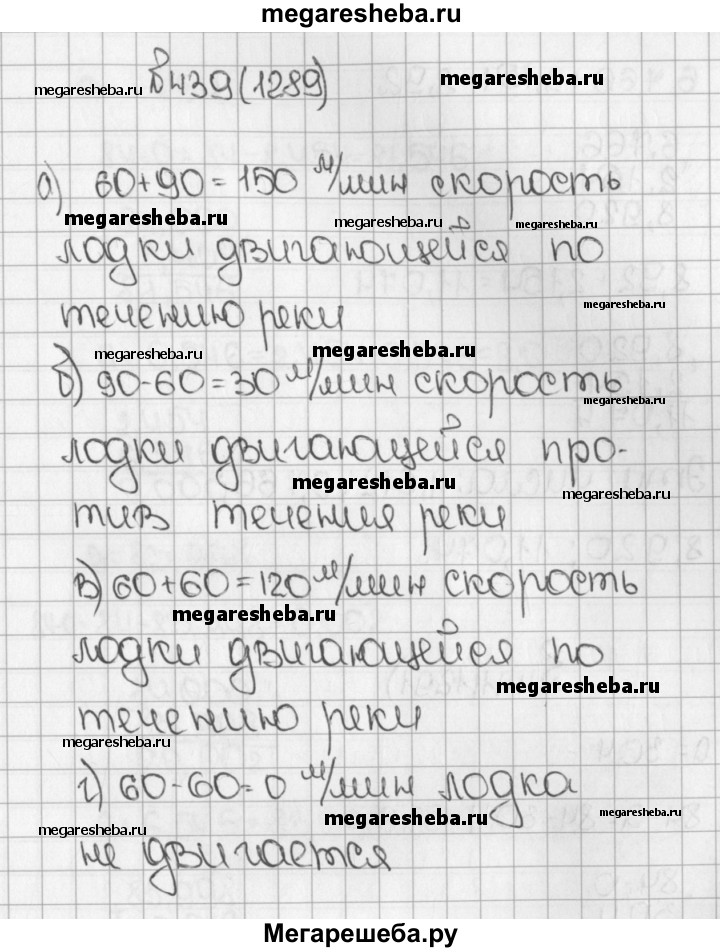 megaresheba.ru
megaresheba.ru
megaresheba.ru
В439(1289)
а) 60+90=150 м/мин скорость
megaresheba.ru
megaresheba.ru
megaresheba.ru
лодки двигающейся по
megaresheba.ru
течению реки
megaresheba.ru
megaresheba.ru
б) 90-60=30 м/мин скорость
megaresheba.ru
лодки двигающейся про-
megaresheba.ru
megaresheba.ru
тив течения реки
в) 60+60=120 м/мин скорость
megaresheba.ru
лодки двигающейся по
megaresheba.ru
течению реки
megaresheba.ru
г) 60-60=0 м/мин лодка
megaresheba.ru
megaresheba.ru
megaresheba.ru
не двигается
Мегарешеба.ру